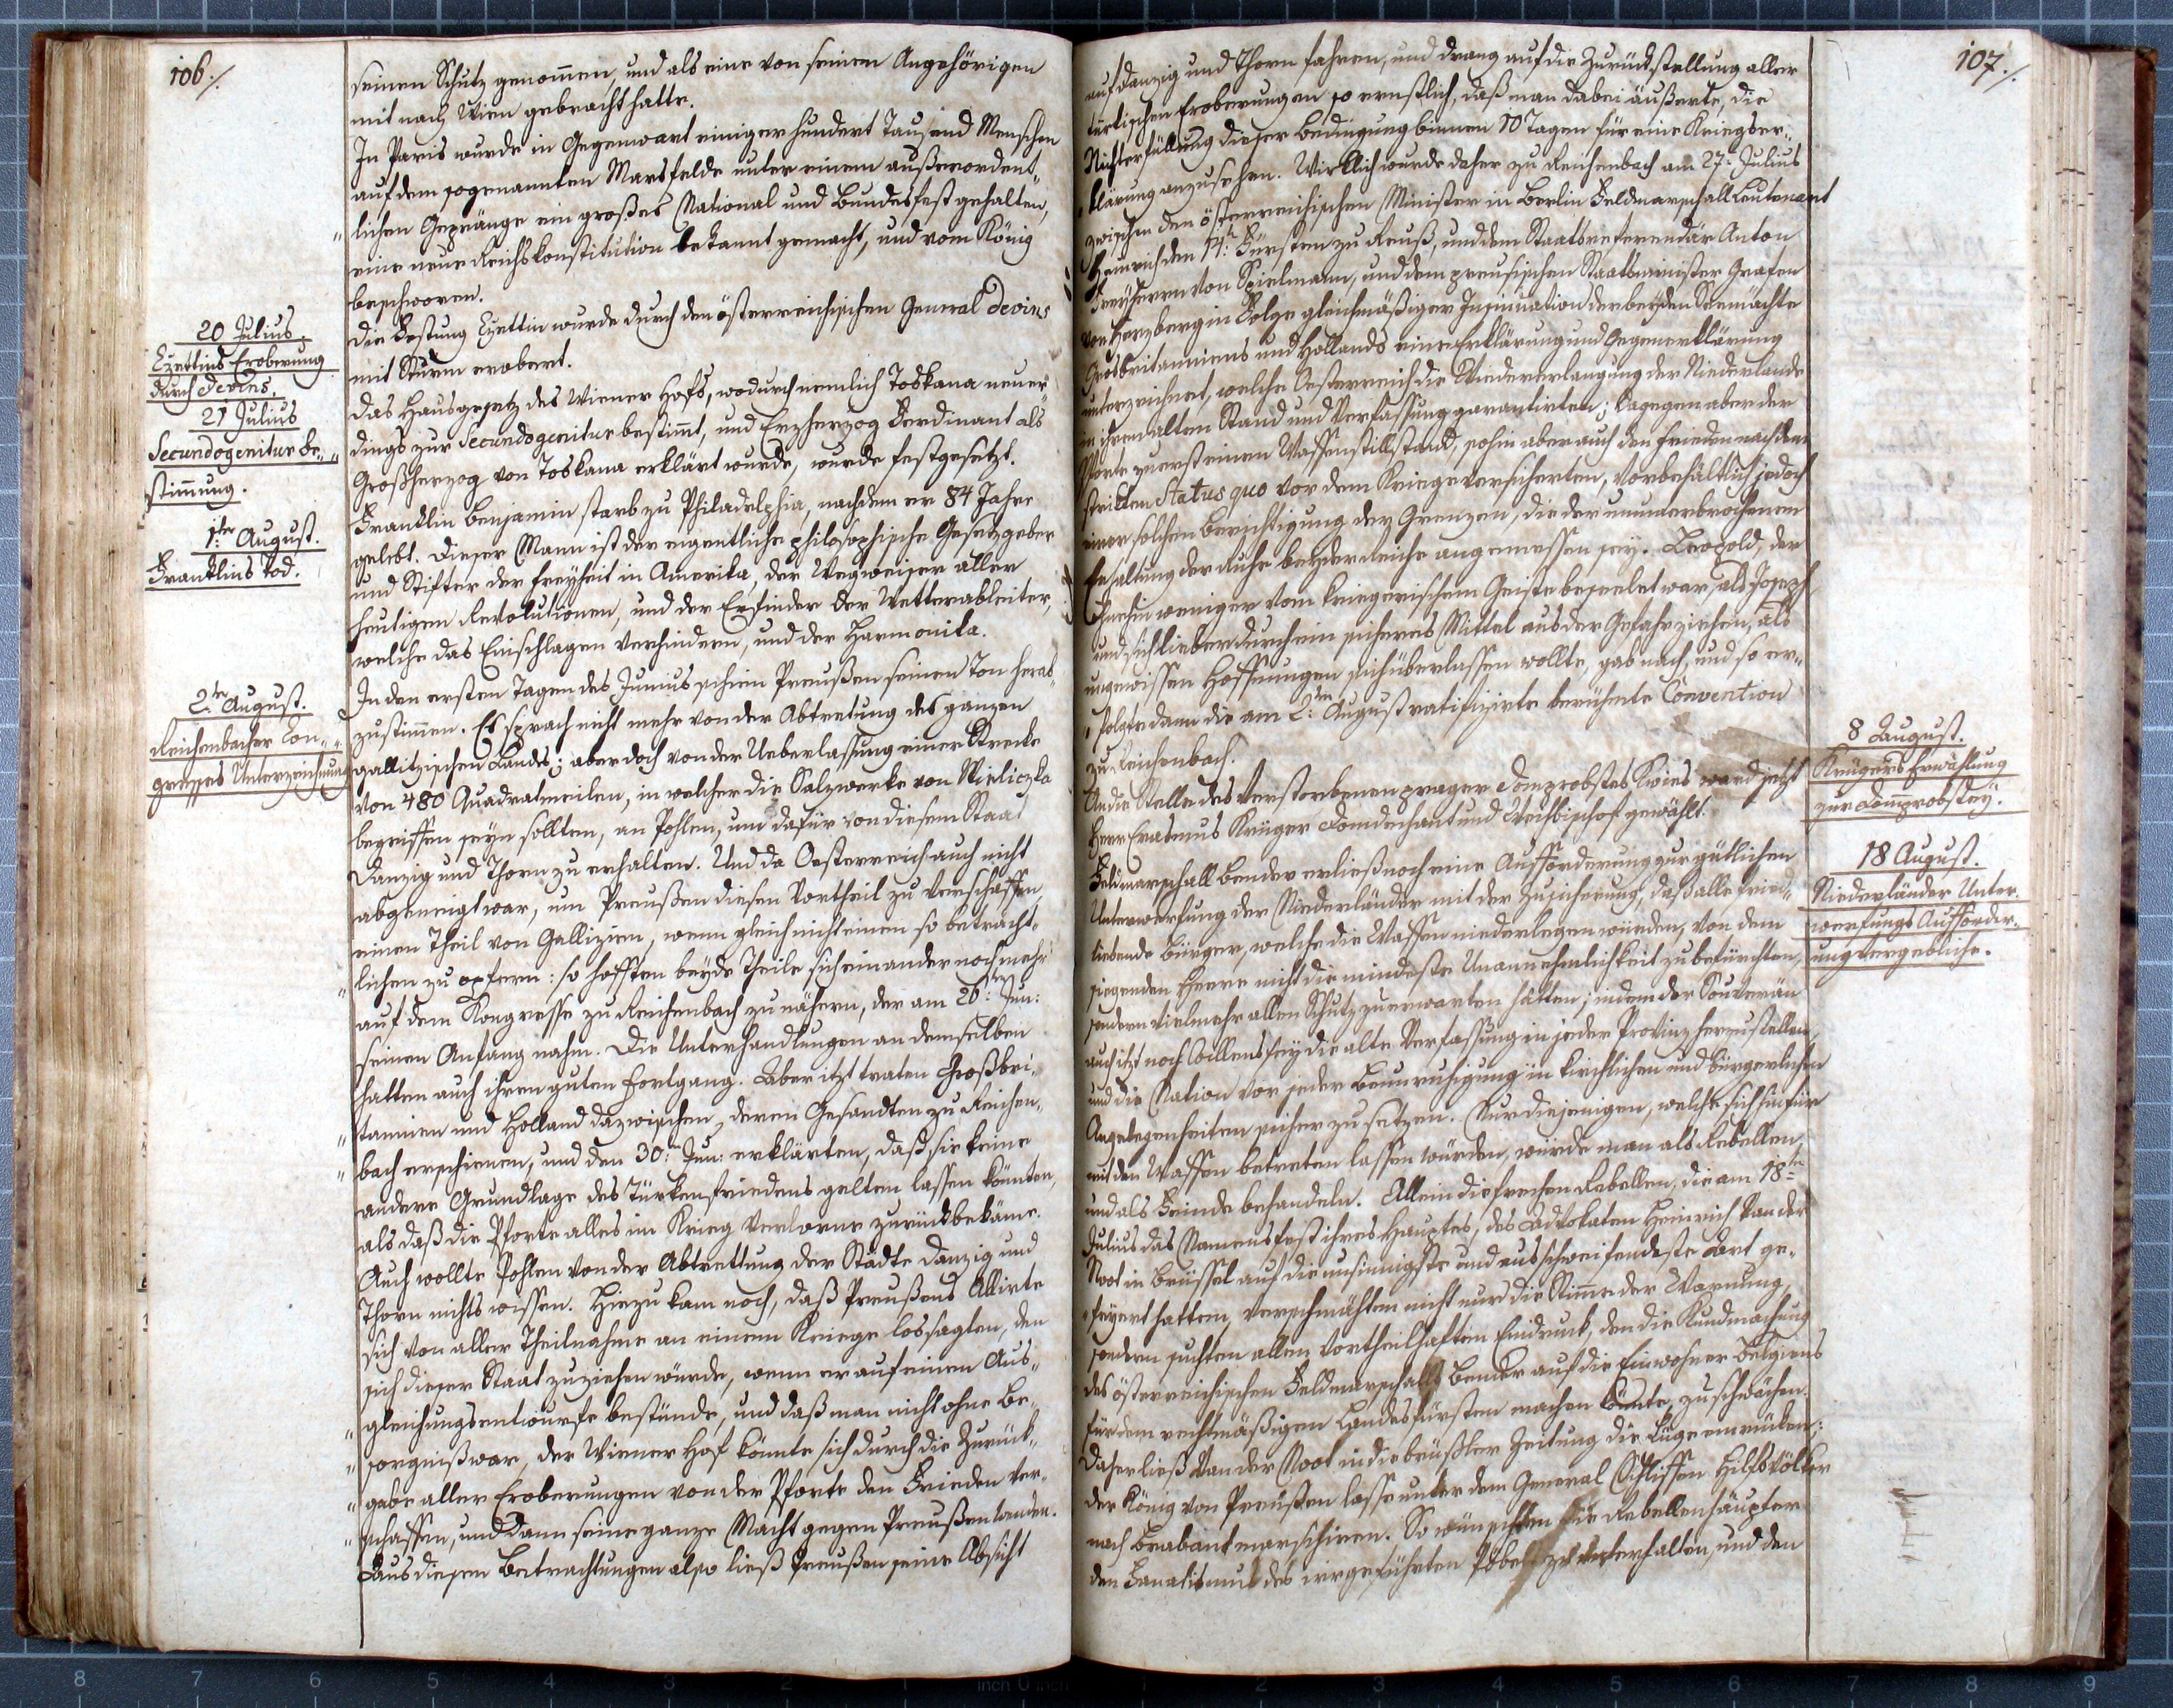 106./.
seinen Schutz genom̅en, und als eine von seinen Angehörigen
mit nach Wien gebracht hatte.
In Paris wurde in Gegenwart einiger hundert Tausend Menschen
auf dem sogenannten Marsfelde unter einem außerordent„
„lichen Gepränge ein großes National und Bundesfest gehalten,
eine neue Reichskonstitution bekannt gemacht, und vom König
beschworen.
20 Julius.
Czettins Eroberung
durch Devins.
Die Festung Czettin wurde durch den österreichischen General Devins
mit Sturm erobert.
21 Julius
Secundogenitur Be„
„stim̅ung.
Das Hausgesetz des Wiener Hofs, wodurch nemlich Toskana neuer„
dings zur Secundogenitur bestim̅t, und Erzherzog Ferdinant als
Großherzog von Toskana erklärt wurde, wurde festgesetzt.
1ter August.
Franklins Tod.
Franklin Benjamin starb zu Philadelphia, nachdem er 84 Jahre
gelebt. Dieser Mann ist der eigentliche philosophische Gesetzgeber
und Stifter der Freyheit in Amerika, der Wegweiser aller
heutigen Revolutionen, und der Erfinder der Wetterableiter,
welche das Einschlagen verhindern, und der Harmonika.
2ter August.
Reichenbacher Con„
gresses Unterzeichnung
In den ersten Tagen des Junius schien Preußen seinen Ton herab„
zustim̅en. Es sprach nicht mehr von der Abtretung des ganzen
gallitzischen Lands; aber doch von der Ueberlassung einer Strecke
von 480 Quadratmeilen, in welcher die Salzwerke von Wieliczka
begriffen seyn sollten, an Pohlen, um dafür von diesem Staat
Danzig und Thorn zu erhalten. Und da Oesterreich auch nicht
abgeneigt war, um Preußen diesen Vortheil zu verschaffen,
einen Theil von Gallizien, wenn gleich nicht einen so beträcht„
„lichen zu opfern: so hofften beyde Theile sich einander noch mehr
auf dem Kongresse zu Reichenbach zu nähern, der am 26ten Jun:
seinen Anfang nahm. Die Unterhandlungen an demselben
hatten auch ihren guten Fortgang. Aber itzt traten Großbri„
„tannien und Holland dazwischen, deren Gesandten zu Reichen„
„bach erschienen, und den 30: Jun: erklärten, daß sie keine
andere Grundlage des Türkenfriedens gelten lassen könnten,
als daß die Pforte alles im Krieg Verlorne zurückbekäme.
Auch wollte Pohlen von der Abtrettung der Städte Danzig und
Thorn nichts wissen. Hiezu kam noch, daß Preußens Allirte
sich von aller Theilnahme an einem Kriege lossagten, den
sich dieser Staat zuziehen würde, wenn er auf seinem Aus„
„gleichungsentwurfe bestünde, und daß man nicht ohne Be„
„sorgniß war, der Wiener Hof könnte sich durch die Zurück„
„gabe aller Eroberungen von der Pforte den Frieden ver„
„schaffen, und dann seine ganze Macht gegen Preußen wenden.
Aus diesen Betrachtungen also ließ Preußen seine Absicht
107./.
auf Danzig und Thorn fahren, und drang auf die Zurückstellung aller
türkischen Eroberungen so ernstlich, daß man dabei äußerte, die
Nichterfüllung dieser Bedingung binnen 10 Tagen für eine Kriegser„
„klärung anzusehen. Wirklich wurde daher zu Reichenbach am 27: Julius
zwischen den österreichischen Minister in Berlin Feldmarschall Leutenant
Heinrich den 14n Fürsten zu Reuß, und dem Staatsreferendär Anton
Freyherrn von Spielmann, und dem preusischen Staatsminister Grafen
von Herzberg in Folge gleichmäßiger Insinuation der beyden Seemächte
Grosbritanniens und Hollands eine Erklärung und Gegenerklärung
unterzeichnet, welche Oesterreich die Wiedererlangung der Niederlande
in ihren alten Stand und Verfassung garantirten; dagegen aber der
Pforte zuerst einen Waffenstillstand, sohin aber auch den Frieden nach dem
strikten Status quo vor dem Kriege versicherten, vorbehältlich jedoch
einer solchen Berichtigung der Grenzen, die der ununterbrochenen
Erhaltung der Ruhe beyder Reiche angemessen sey. Leopold, der
ohnehin weniger vom kriegerischen Geiste beseelet war, als Joseph,
und sich lieber durch ein sicheres Mittel aus der Gefahr ziehen, als
ungewissen Hoffnungen sich überlassen wollte, gab nach, und so er„
„folgte dann die am 2ten August ratifizirte berühmte Convention
zu Reichenbach.
8 August.
Krügers Erwählung
zur Domprobstey.
An die Stelle des verstorbenen prager Domprobstes Kwies ward jetzt
Herr Erasmus Krüger Domdechant und Weihbischof gewählt.
18 August.
Niederländer Unter„
werfungs Aufforder„
ung vergebliche.
Feldmarschall Bender erließ noch eine Aufforderung zur gütlichen
Unterwerfung der Niederländer mit der Zusicherung, daß alle fried„
liebende Bürger, welche die Waffen niederlegen würden, von dem
siegenden Heere nicht die mindeste Unannehmlichkeit zu befürchten,
sondern vielmehr allen Schutz zu erwarten hätten; indem der Souverän
auch itzt noch Willens sey die alte Verfassung in jeder Provinz herzustellen,
und die Nation vor jeder Beunruhigung in kirchlichen und bürgerlichen
Angelegenheiten sicher zu setzen. Nur diejenigen, welche sich hinfür
mit den Waffen betreten lassen würden, würde man als Rebellen,
und als Feinde behandeln. Allein die frechen Rebellen, die am 18ten
Julius das Namensfest ihres Hauptes, des Advokaten Heinrich van der
Noot in Brüssel auf die unsinnigste und ausschweifendeste Art ge„
„feyert hatten, verschmähten nicht nur die Stim̅e der Warnung,
sondern suchten allen vortheilhaften Eindruck, den die Kundmachung
des österreichischen Feldmarschalls Bender auf die Einwohner Belgiens
für den rechtmäßigen Landesfürsten machen könnte, zu schwächen.
Daher ließ van der Noot in die brüßler Zeitung die Lüge einrücken:
der König von Preußen lasse unter dem General Schliffen Hilfsvölker
nach Brabant marschiren. So wünschten die Rebellenhäupter
den Fanatismus des irrgeführten Pöbels zu unterhalten, und den